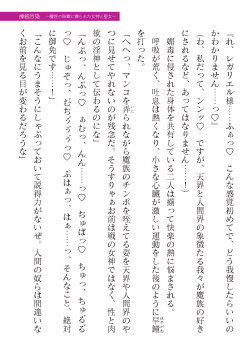 神核汚染 ～魔族の陰謀に膝をつく女神と聖女～
「れ、レガリエル様……ふぁっ♡　こんな感覚初めてで、どう我慢したらいいの
かわかりません……っ♡」
「わ、私だって、ンンッ♡　ですが、天界と人間界の象徴たる我々が魔族の好き
にされるなど、あってはなりません……！」
媚毒に侵された身体を共有している二人は揃って快楽の熱に悩まされる。
呼吸が荒く、吐息は熱くなり、小さな心臓が激しい運動をした後のように早鐘
を打った。
「へへっ、マンコを弄られながら魔族のチンポを咥えてる姿を天界や人間界のや
つに見せてやれないのが残念だ。そうすりゃぁお前は戦の女神ではなく、性と肉
欲の淫神として伝わるのにな」
「んぶっ、んぷっ♡　ぁむっ、んん……っ♡　ちゅぱっ♡　ちゅっ、ちゅるる
っ♡　じゅぞっ、むぢゅううっ♡　ぷはぁっ、はぁ……っ、そんなこと、絶対
に御免です……！」
「こんなにうまそうにしゃぶっておいて説得力がないぜ。人間の奴らは間違いな
くお前を見る目が変わるだろうな」